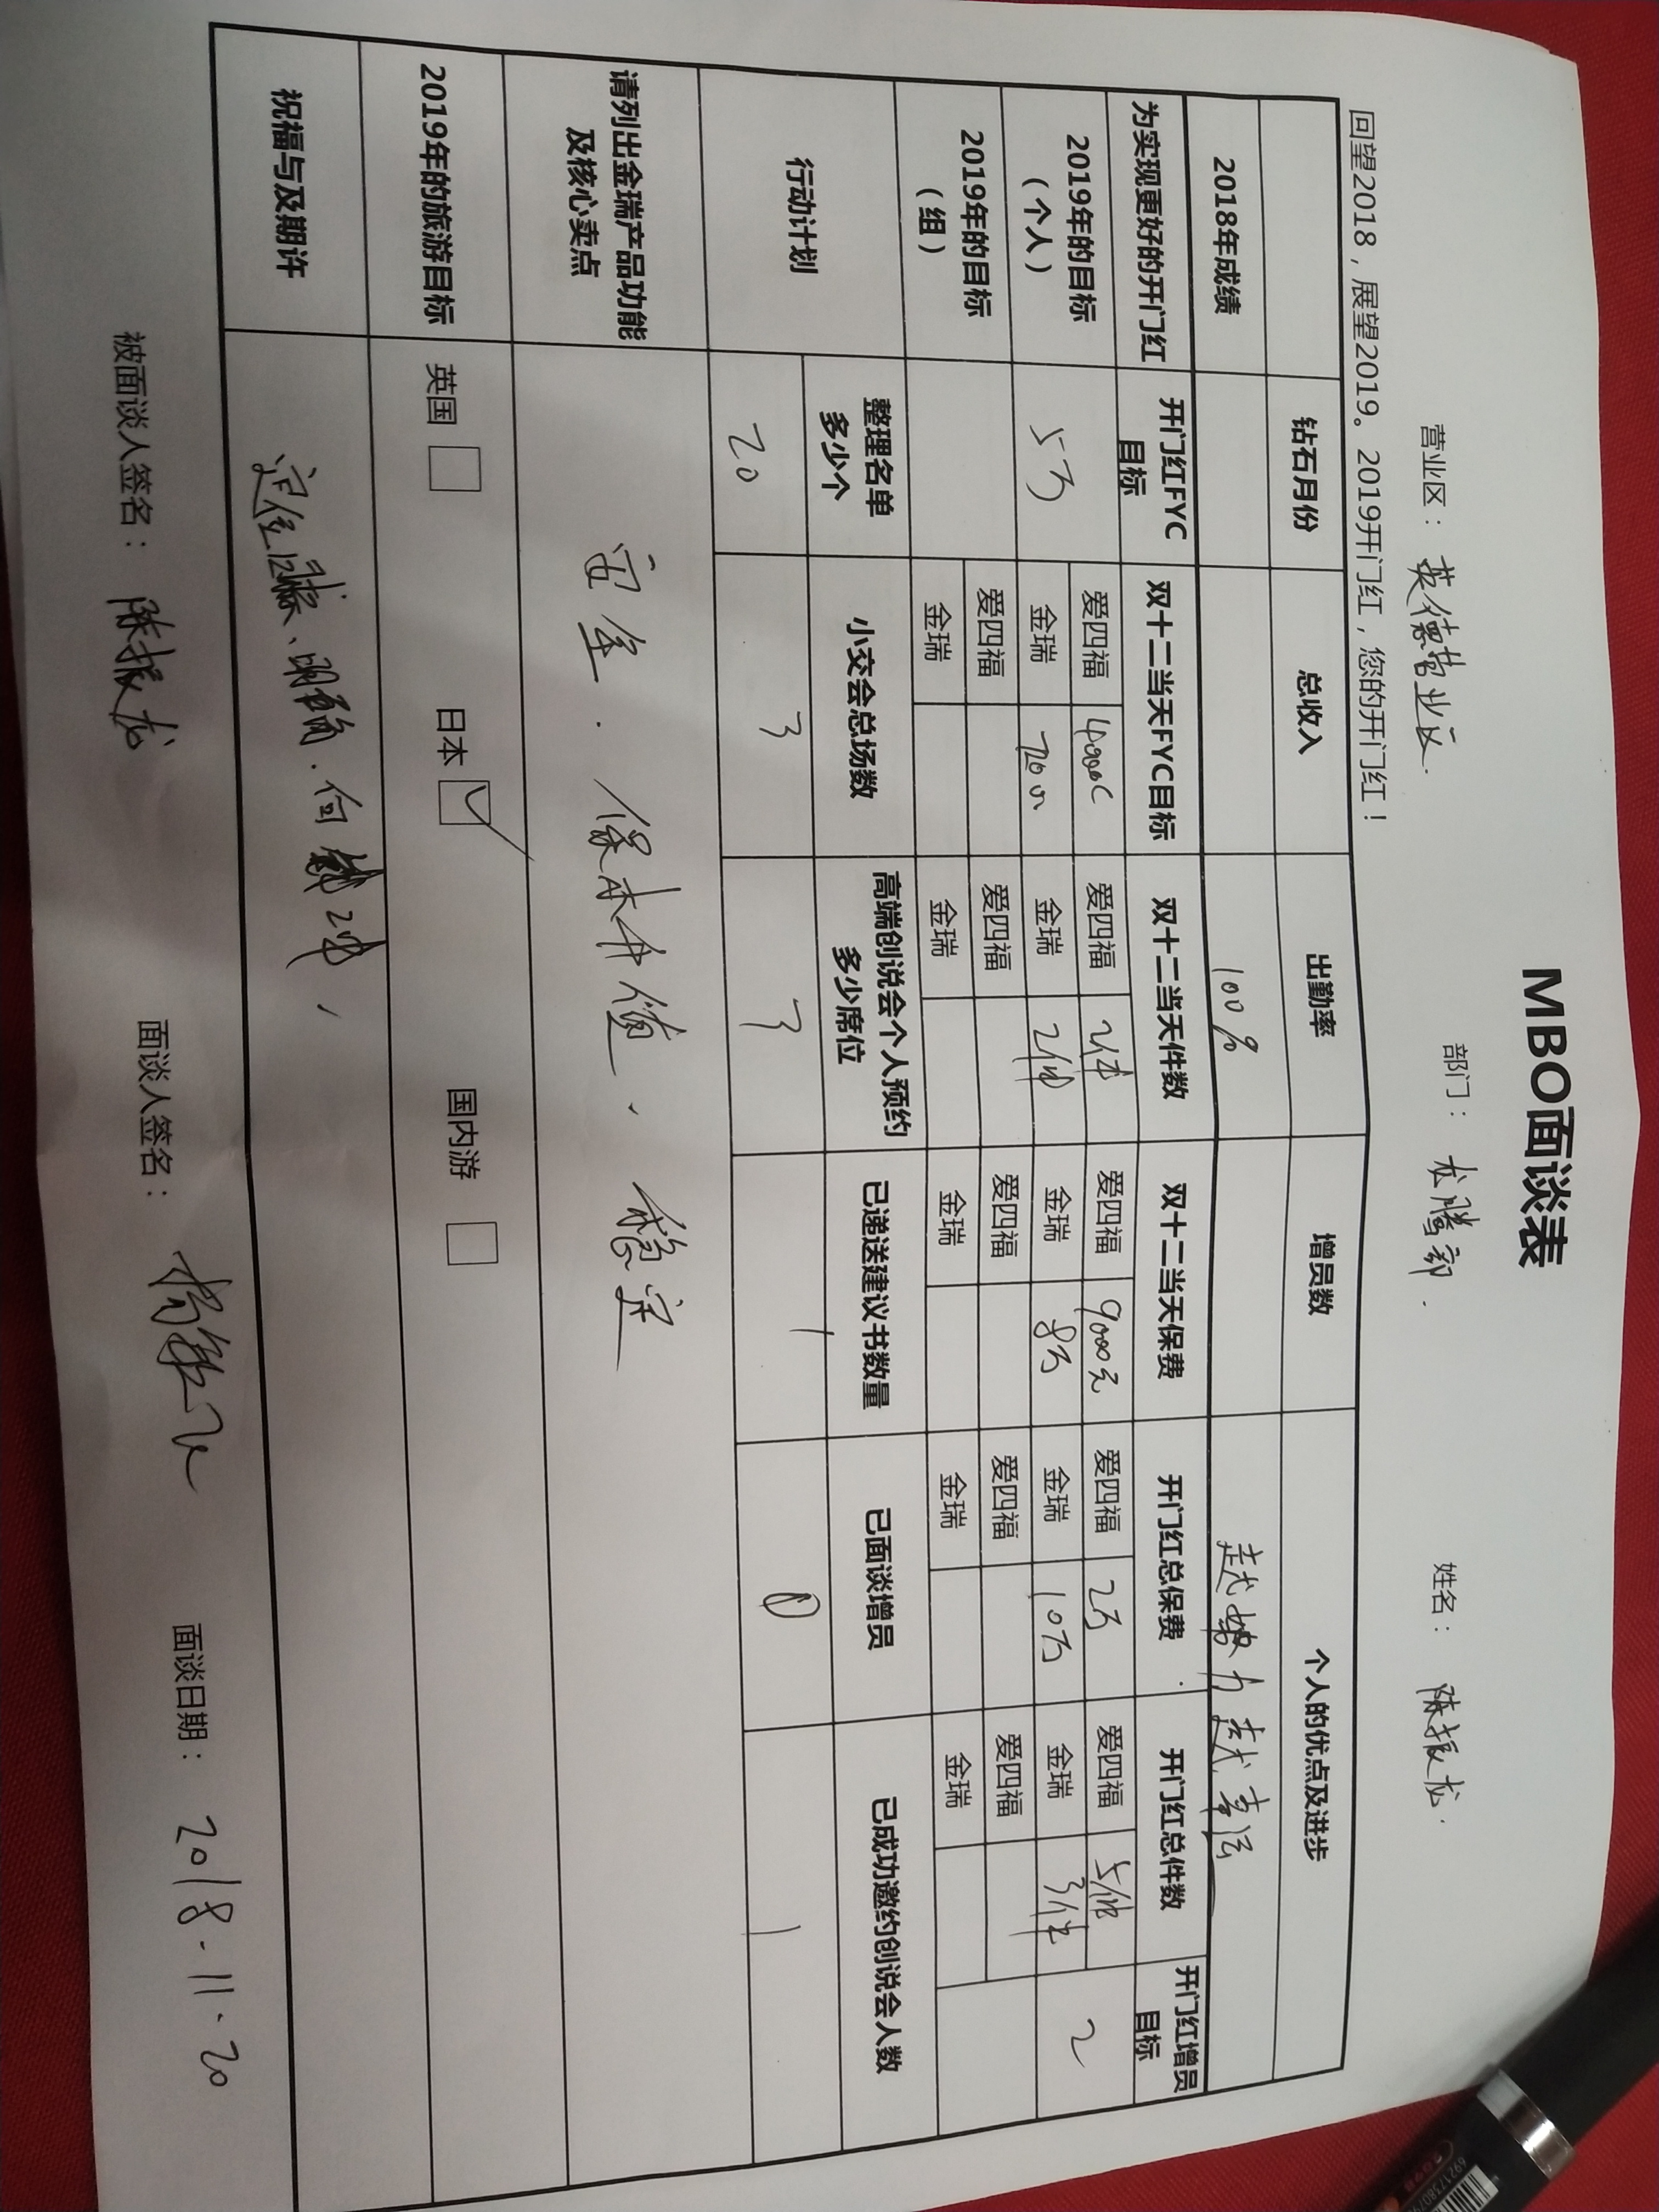 MBO面谈表
营业区： 英德营业区. 部门： 龙腾部. 姓名： 陈振龙.
回望2018，展望2019。2019开门红，您的开门红！
钻石月份 总收入 出勤率 增员数 个人的优点及进步
2018年成绩 100% 越努力越幸运
为实现更好的开门红 开门红FYC目标 双十二当天FYC目标 双十二当天件数 双十二当天保费 开门红总保费 开门红总件数 开门红增员目标
2019年的目标（个人） 5万 爱四福 爱四福 2件 爱四福 9000元 爱四福 2万 爱四福 5件 2
金瑞 金瑞 2件 金瑞 8万 金瑞 10万 金瑞 3件
2019年的目标（组） 爱四福 爱四福 爱四福 爱四福 爱四福
金瑞 金瑞 金瑞 金瑞 金瑞
行动计划 整理名单多少个 小交会总场数 高端创说会个人预约多少席位 已递送建议书数量 已面谈增员 已成功邀约创说会人数
20 3 3 1 0 1
请列出金瑞产品功能及核心卖点 安全. 保本升值、稳定
2019年的旅游目标 英国 日本 国内游
祝福与及期许
被面谈人签名： 陈振龙 面谈人签名： 面谈日期： 2018.11.20